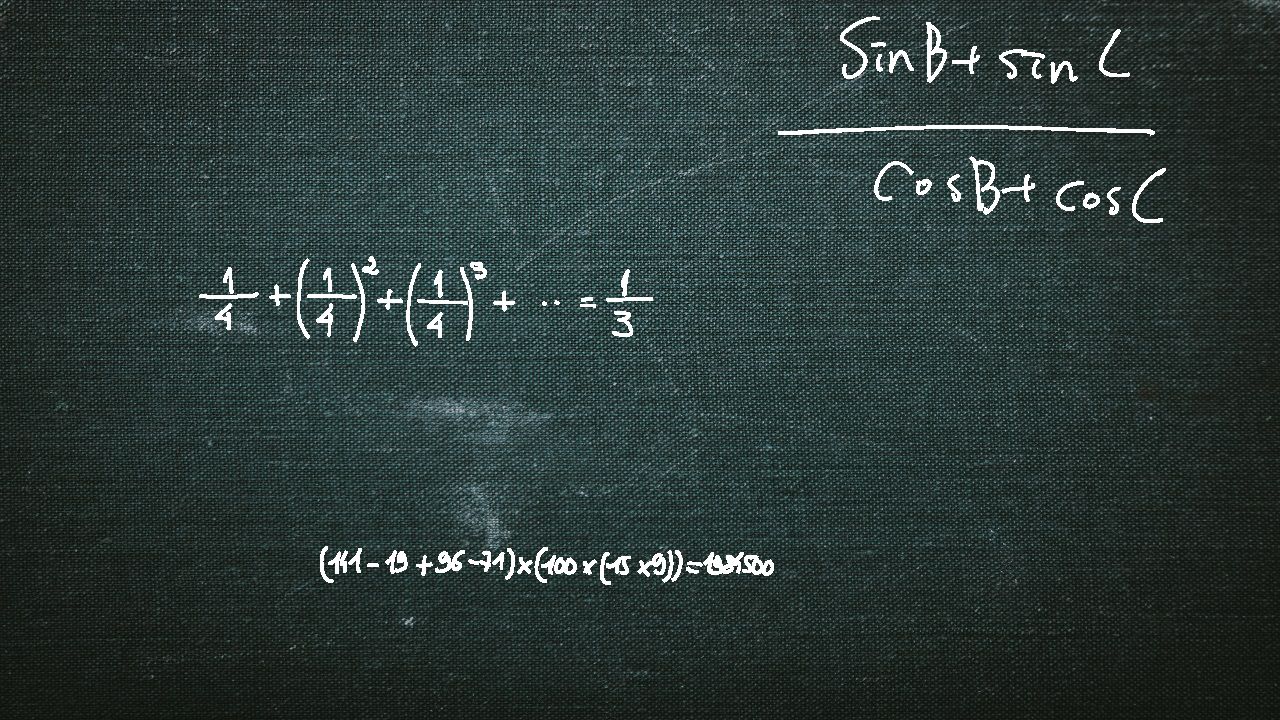 SinB+ sin C
CosB+ cosC
1/4 + (1/4)² + (1/4)³ + .. = 1/3
(141-19+96-71)×(100×(15×9))=1984500